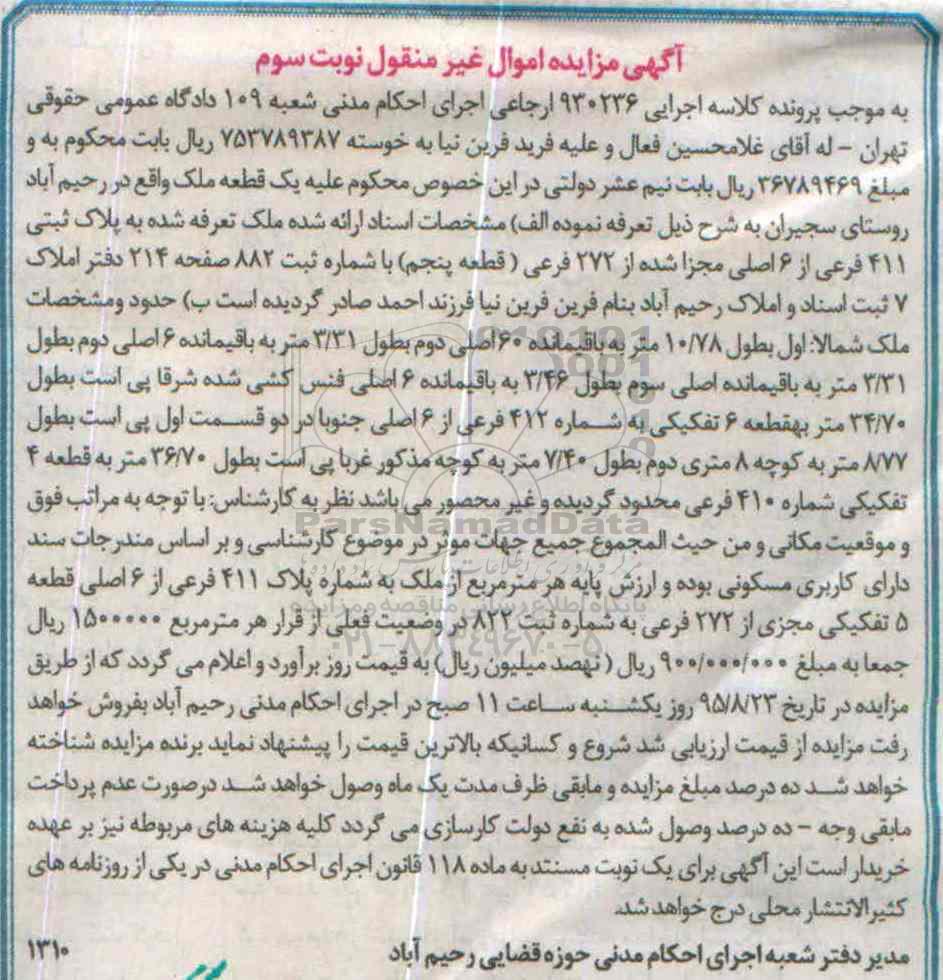 آگهی مزایده اموال غیر منقول نوبت سوم
به موجب پرونده کلاسه اجرایی ۹۳۰۲۳۶ ارجاعی اجرای احکام مدنی شعبه ۱۰۹ دادگاه عمومی حقوقی
تهران - له آقای غلامحسین فعال و علیه فرید فرین نیا به خوسته ۷۵۳۷۸۹۳۸۷ ریال بابت محکوم به و
مبلغ ۳۶۷۸۹۴۶۹ ریال بابت نیم عشر دولتی در این خصوص محکوم علیه یک قطعه ملک واقع در رحیم آباد
روستای سجیران به شرح ذیل تعرفه نموده الف) مشخصات اسناد ارائه شده ملک تعرفه شده به پلاک ثبتی
۴۱۱ فرعی از ۶ اصلی مجزا شده از ۲۷۲ فرعی (قطعه پنجم) با شماره ثبت ۸۸۲ صفحه ۲۱۴ دفتر املاک
۷ ثبت اسناد و املاک رحیم آباد بنام فرین فرین نیا فرزند احمد صادر گردیده است ب) حدود ومشخصات
ملک شمالا: اول بطول ۱۰/۷۸ متر به باقیمانده ۶۰ اصلی دوم بطول ۳/۳۱ متر به باقیمانده ۶ اصلی دوم بطول
۳/۳۱ متر به باقیمانده اصلی سوم بطول ۳/۴۶ به باقیمانده ۶ اصلی فنس کشی شده شرقا پی است بطول
۳۴/۷۰ متر بهقطعه ۶ تفکیکی به شماره ۴۱۲ فرعی از ۶ اصلی جنوبا در دو قسمت اول پی است بطول
۸/۷۷ متر به کوچه ۸ متری دوم بطول ۷/۴۰ متر به کوچه مذکور غربا پی است بطول ۳۶/۷۰ متر به قطعه ۴
تفکیکی شماره ۴۱۰ فرعی محدود گردیده و غیر محصور می باشد نظر به کارشناس: با توجه به مراتب فوق
ParsNamadData
و موقعیت مکانی و من حیث المجموع جمیع جهات موثر در موضوع کارشناسی و بر اساس مندرجات سند
دارای کاربری مسکونی بوده و ارزش پایه هر مترمربع از ملک به شماره پلاک ۴۱۱ فرعی از ۶ اصلی قطعه
پایگاه اطلاع رسانی مناقصه و مزایده
۵ تفکیکی مجزی از ۲۷۲ فرعی به شماره ثبت ۸۲۲ در وضعیت فعلی از قرار هر مترمربع ۱۵۰۰۰۰۰ ریال
۰۲۱-۸۸۳۴۹۶۷۰-۵
جمعا به مبلغ ۹۰۰/۰۰۰/۰۰۰ ریال (نهصد میلیون ریال) به قیمت روز برآورد و اعلام می گردد که از طریق
مزایده در تاریخ ۹۵/۸/۲۳ روز یکشنبه ساعت ۱۱ صبح در اجرای احکام مدنی رحیم آباد بفروش خواهد
رفت مزایده از قیمت ارزیابی شد شروع و کسانیکه بالاترین قیمت را پیشنهاد نماید برنده مزایده شناخته
خواهد شد ده درصد مبلغ مزایده و مابقی ظرف مدت یک ماه وصول خواهد شد درصورت عدم پرداخت
مابقی وجه - ده درصد وصول شده به نفع دولت کارسازی می گردد کلیه هزینه های مربوطه نیز بر عهده
خریدار است این آگهی برای یک نوبت مستند به ماده ۱۱۸ قانون اجرای احکام مدنی در یکی از روزنامه های
کثیرالانتشار محلی درج خواهد شد.
مدیر دفتر شعبه اجرای احکام مدنی حوزه قضایی رحیم آباد ۱۳۱۰